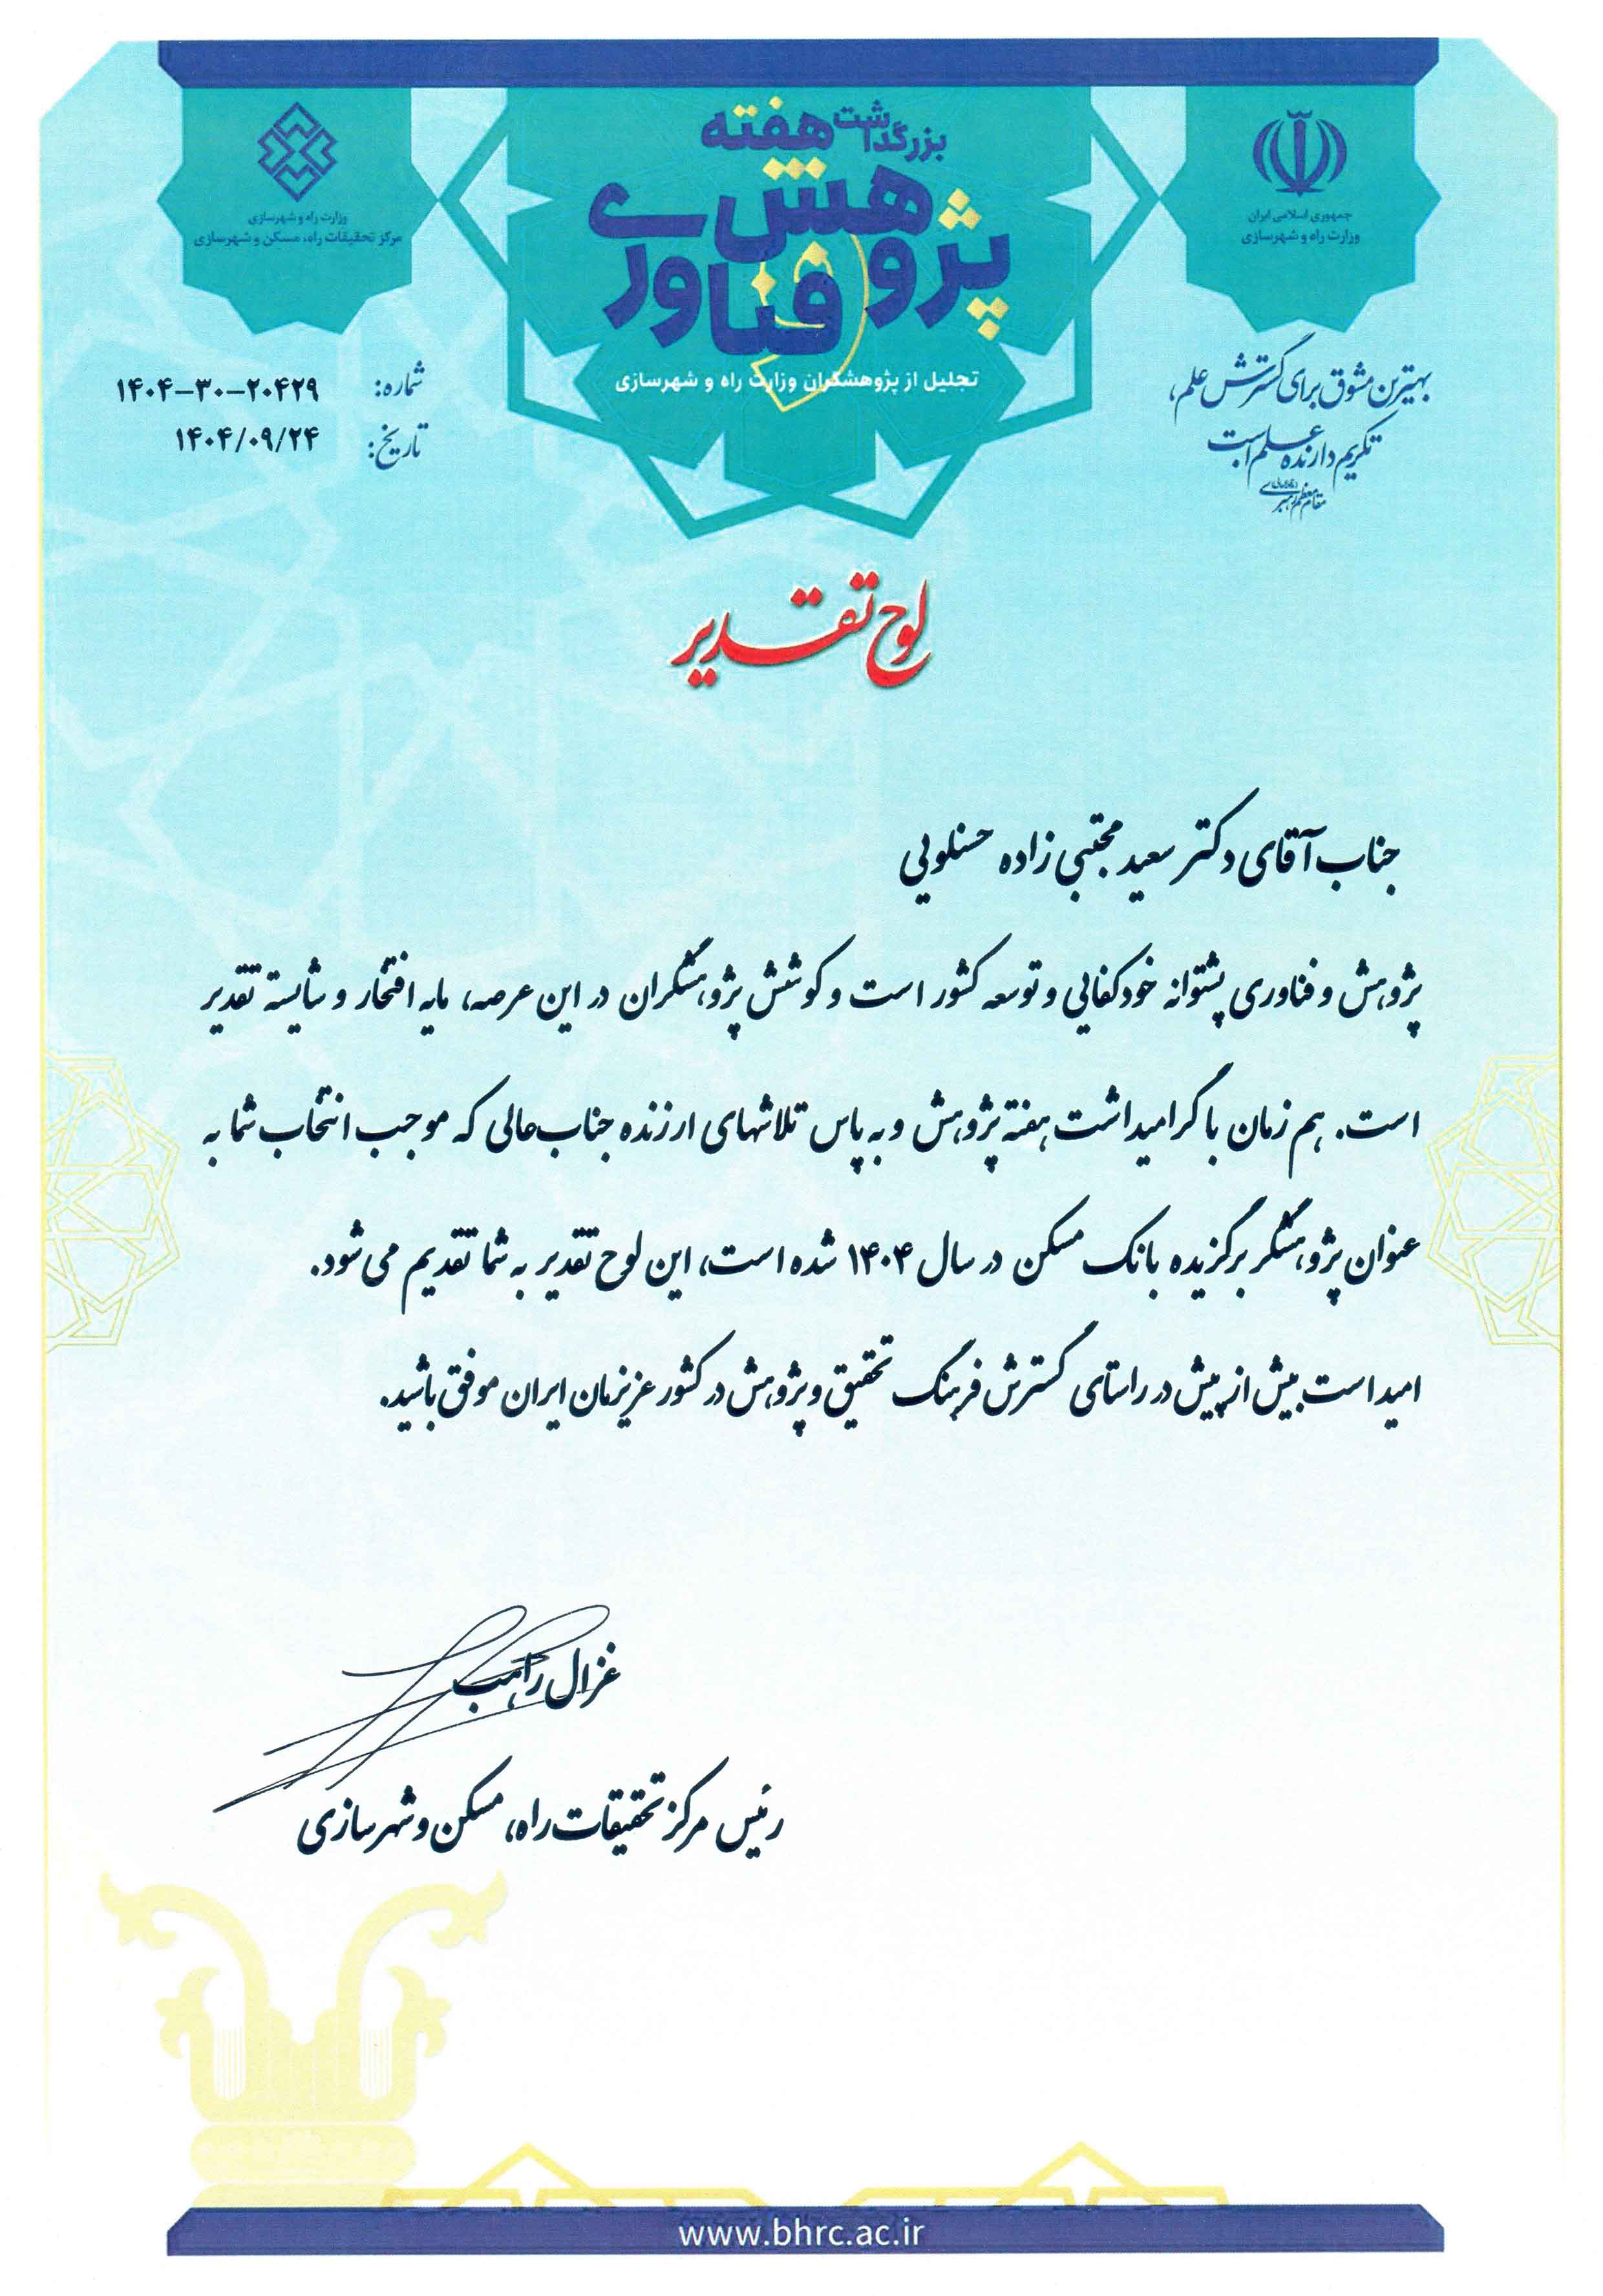 جمهوری اسلامی ایران
وزارت راه و شهرسازی
بزرگداشت هفته
پژوهش و
فناوری
تجلیل از پژوهشگران وزارت راه و شهرسازی
وزارت راه و شهرسازی
مرکز تحقیقات راه، مسکن و شهرسازی
بهترین مشوق برای گسترش علم،
تکریم دارنده علم است
مقام معظم رهبری
شماره: ۱۴۰۴-۳۰-۲۰۴۲۹
تاریخ: ۱۴۰۴/۰۹/۲۴
لوح تقدیر
جناب آقای دکتر سعید مجتبی زاده حسنلویی
پژوهش و فناوری پشتوانه خودکفایی و توسعه کشور است و کوشش پژوهشگران در این عرصه، مایه افتخار و شایسته تقدیر
است. هم زمان با گرامیداشت هفته پژوهش و به پاس تلاشهای ارزنده جناب‌عالی که موجب انتخاب شما به
عنوان پژوهشگر برگزیده بانک مسکن در سال ۱۴۰۴ شده است، این لوح تقدیر به شما تقدیم می‌شود.
امید است بیش از پیش در راستای گسترش فرهنگ تحقیق و پژوهش در کشور عزیزمان ایران موفق باشید.
غزال راهب
رئیس مرکز تحقیقات راه، مسکن و شهرسازی
www.bhrc.ac.ir